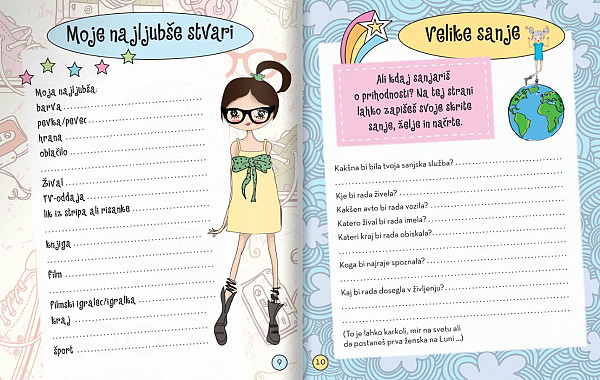 Moje najljubše stvari
Moja najljubša:
barva
pevka/pevec
hrana
oblačilo
žival
TV-oddaja
lik iz stripa ali risanke
knjiga
film
filmski igralec/igralka
kraj
šport
9
Velike sanje
Ali kdaj sanjariš
o prihodnosti? Na tej strani
lahko zapišeš svoje skrite
sanje, želje in načrte.
Kakšna bi bila tvoja sanjska služba?
Kje bi rada živela?
Kakšen avto bi rada vozila?
Katero žival bi rada imela?
Kateri kraj bi rada obiskala?
Koga bi najraje spoznala?
Kaj bi rada dosegla v življenju?
(To je lahko karkoli, mir na svetu ali
da postaneš prva ženska na Luni ...)
10